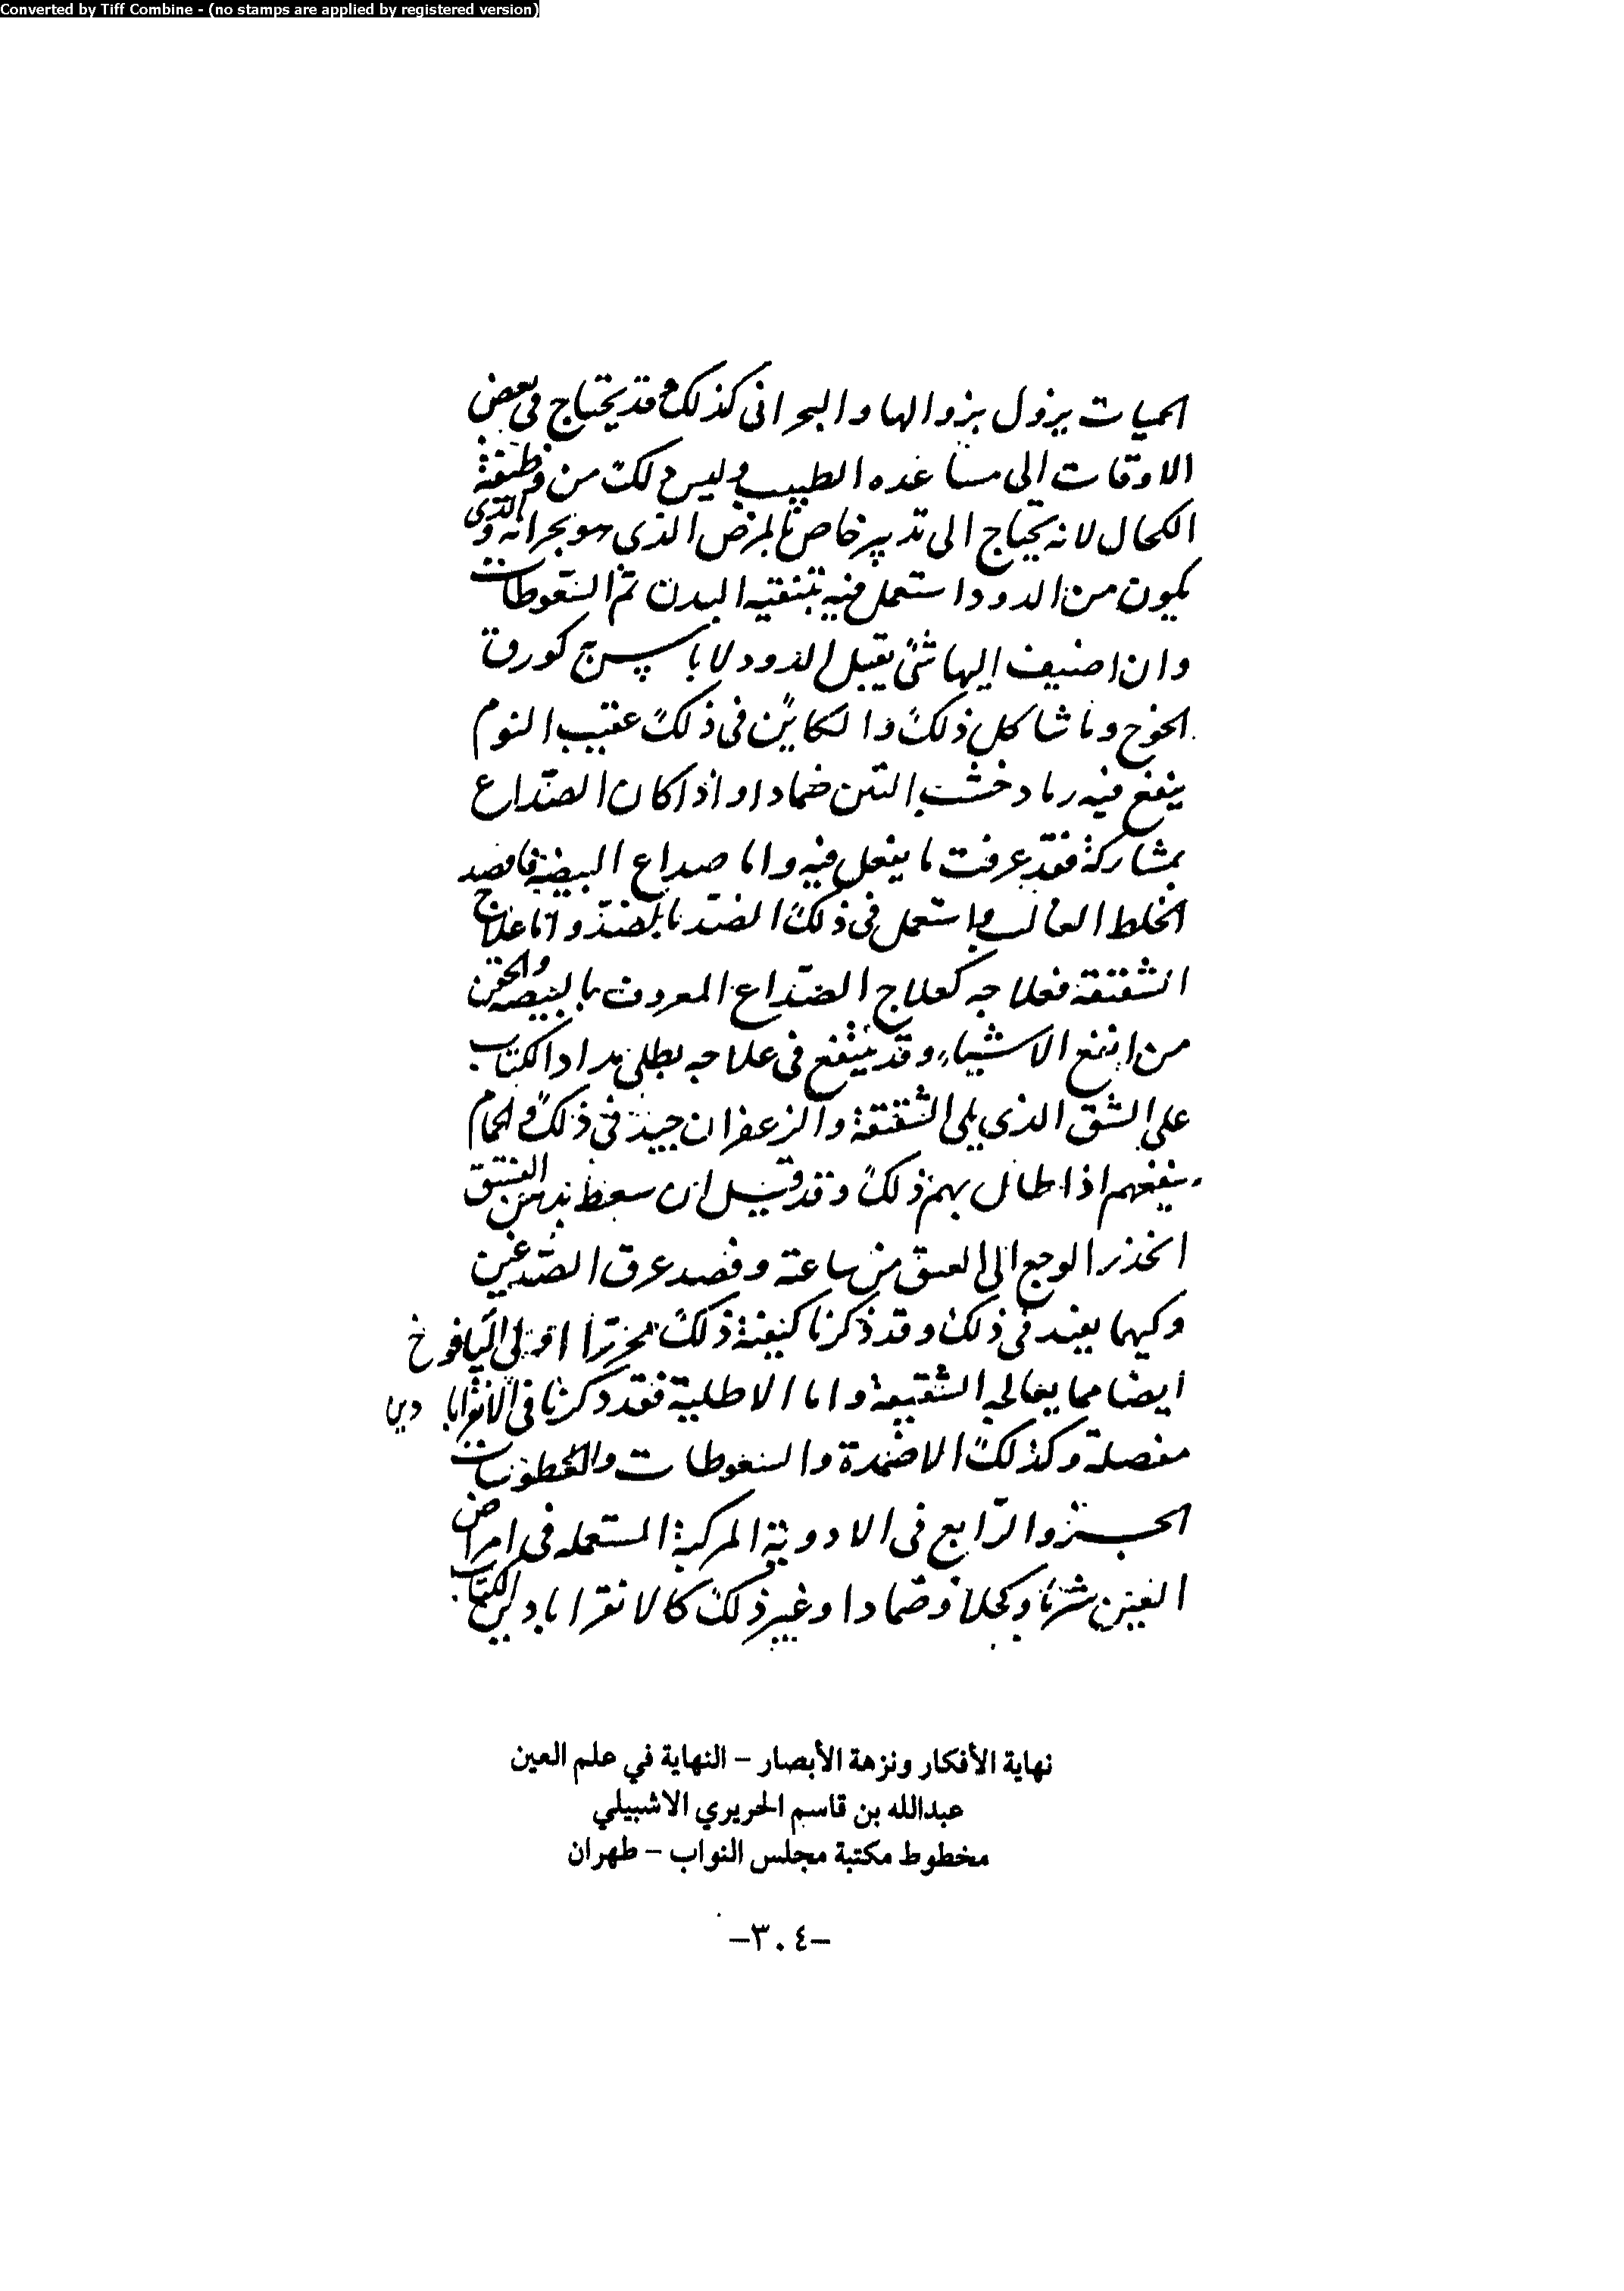 Converted by Tiff Combine - (no stamps are applied by registered version)
الحميات يزول بزوالها والبحرانى كذلك وقد يحتاج فى بعض
الاوقات الى مساعده الطبيب وليس ذلك من وظيفة
الكحال لانه يحتاج الى تدبير خاص بالمرض الذى هو بحرانه والذى
يكون من الدود استعمل فيه تنقيه البدن ثم السعوطات
وان اضيف اليها شئ يقتل الدود لا باس به كورق
الخوخ وما شاكل ذلك والكاين فى ذلك عقيب النوم
ينفع فيه رماد خشب التين ضمادا واذا كان الصداع
بمشاركة فقد عرفت ما يفعل فيه واما صداع البيضة فافصد
الخلط الغالب واستعمل فى ذلك الضد بالضد واما علاج
الشقيقة فعلاجه كعلاج الصداع المعروف بالبيضة والحقن
من انفع الاشياء وقد ينتفع فى علاجه بطلى مداد الكتاب
على الشق الذى يلى الشقيقة والزعفران جيد فى ذلك والحمام
ينفعهم اذا طال بهم ذلك وقد قيل ان سعط بدهن الفستق
انحذر الوجع الى العنق من ساعته وفصد عرق الصدغين
وكيهما يفيد فى ذلك وقد ذكرنا كيفية ذلك محررا وكى اليافوخ
ايضا مما يعالج به الشقيقة واما الاطلية فقد ذكرنا فى الاقرابادين
مفصلة وكذلك الاضمدة والسعوطات
الجزو الرابع فى الادوية المركبة المستعمله فى امراض
العين شربا وكحلا وضمادا وغير ذلك كالاقراباذين لكتاب
نهاية الأفكار ونزهة الأبصار - النهاية في علم العين
عبدالله بن قاسم الحريري الاشبيلي
مخطوط مكتبة مجلس النواب - طهران
-٣٠٤-